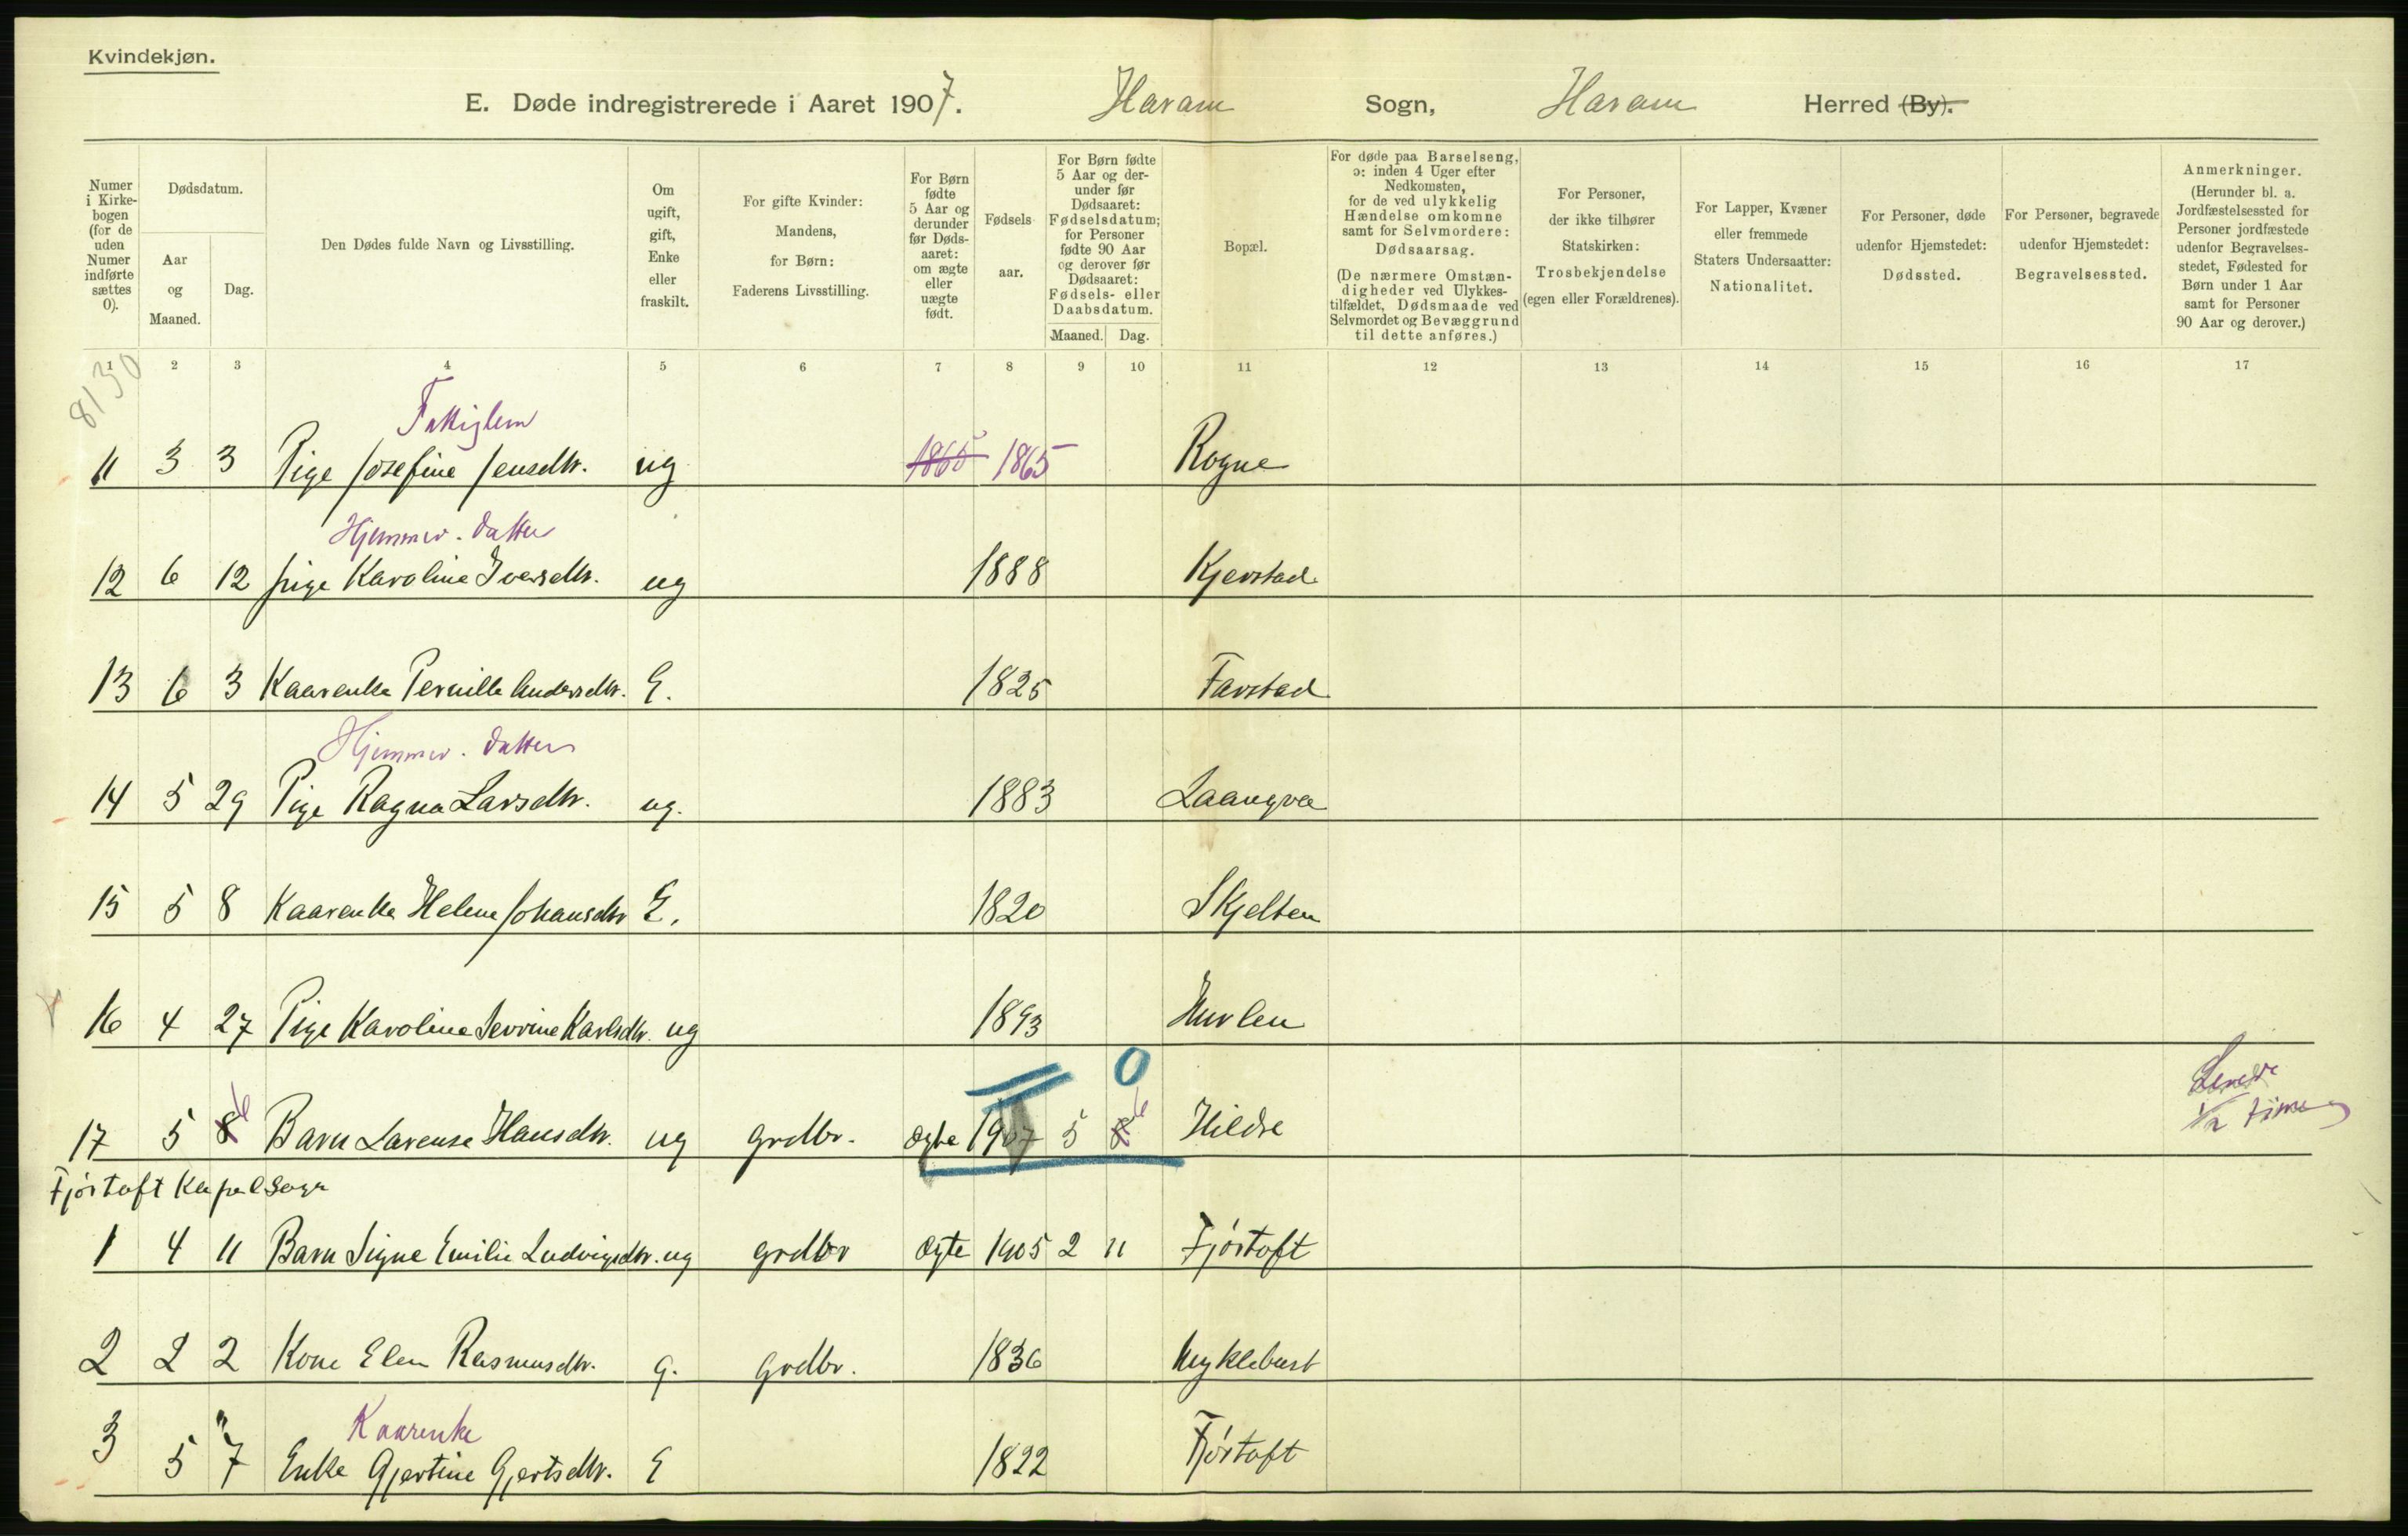 Kvindekjøn.
E. Døde indregistrerede i Aaret 1907. Haram Sogn, Haram Herred (By).
Numer i Kirkebogen (for de uden Numer indførte sættes 0).
Dødsdatum.
Aar og Maaned.
Dag.
Den Dødes fulde Navn og Livsstilling.
Om ugift, gift, Enke eller fraskilt.
For gifte Kvinder: Mandens, for Børn: Faderens Livsstilling.
For Børn fødte 5 Aar og derunder før Dødsaaret: om ægte eller uægte født.
Fødselsaar.
For Børn fødte 5 Aar og derunder før Dødsaaret: Fødselsdatum; for Personer fødte 90 Aar og derover før Dødsaaret: Fødsels- eller Daabsdatum.
Maaned. Dag.
Bopæl.
For døde paa Barselseng, ɔ: inden 4 Uger efter Nedkomsten, for de ved ulykkelig Hændelse omkomne samt for Selvmordere: Dødsaarsag.
(De nærmere Omstændigheder ved Ulykkestilfældet, Dødsmaade ved Selvmordet og Bevæggrund til dette anføres.)
For Personer, der ikke tilhører Statskirken: Trosbekjendelse (egen eller Forældrenes).
For Lapper, Kvæner eller fremmede Staters Undersaatter: Nationalitet.
For Personer, døde udenfor Hjemstedet: Dødssted.
For Personer, begravede udenfor Hjemstedet: Begravelsessted.
Anmerkninger.
(Herunder bl. a. Jordfæstelsessted for Personer jordfæstede udenfor Begravelsesstedet, Fødested for Børn under 1 Aar samt for Personer 90 Aar og derover.)
1 2 3 4 5 6 7 8 9 10 11 12 13 14 15 16 17
8130
Fattiglem
11 3 3 Pige Josefine Jensdtr. ug 1865 1865 Rogne
Hjemmev. Datter
12 6 12 pige Karoline Iversdtr. ug 1888 Kjerstad
13 6 3 Kaarenke Pernille Andersdtr. E. 1825 Farstad
Hjemmev. Datter
14 5 29 Pige Ragna Larsdtr. ug. 1883 Laangva
15 5 8 Kaarenke Helene Johansdtr E. 1820 Skjelten
16 4 27 Pige Karoline Severine Karlsdtr. ug 1893 Hurlen
0
17 5 8 6 Barn Larense Hansdtr. ug grdbr. ægte 1907 5 8 6 Hildre Levede 1/2 Time
Fjörtoft Kapelsogn
1 4 11 Barn Signe Emilie Ludvigsdtr. ug grdbr ægte 1905 2 11 Fjörtoft
2 2 2 Kone Elen Rasmusdtr. g. Grdbr. 1836 Myklebust
Kaarenke
3 5 7 Enke Gjertine Gjertsdtr. E 1822 Fjörtoft